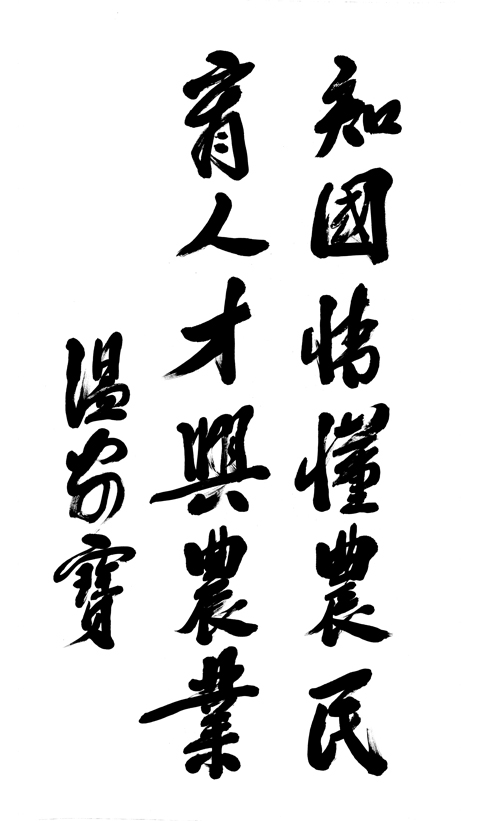 知國情懂農民
育人才興農業
溫家寶